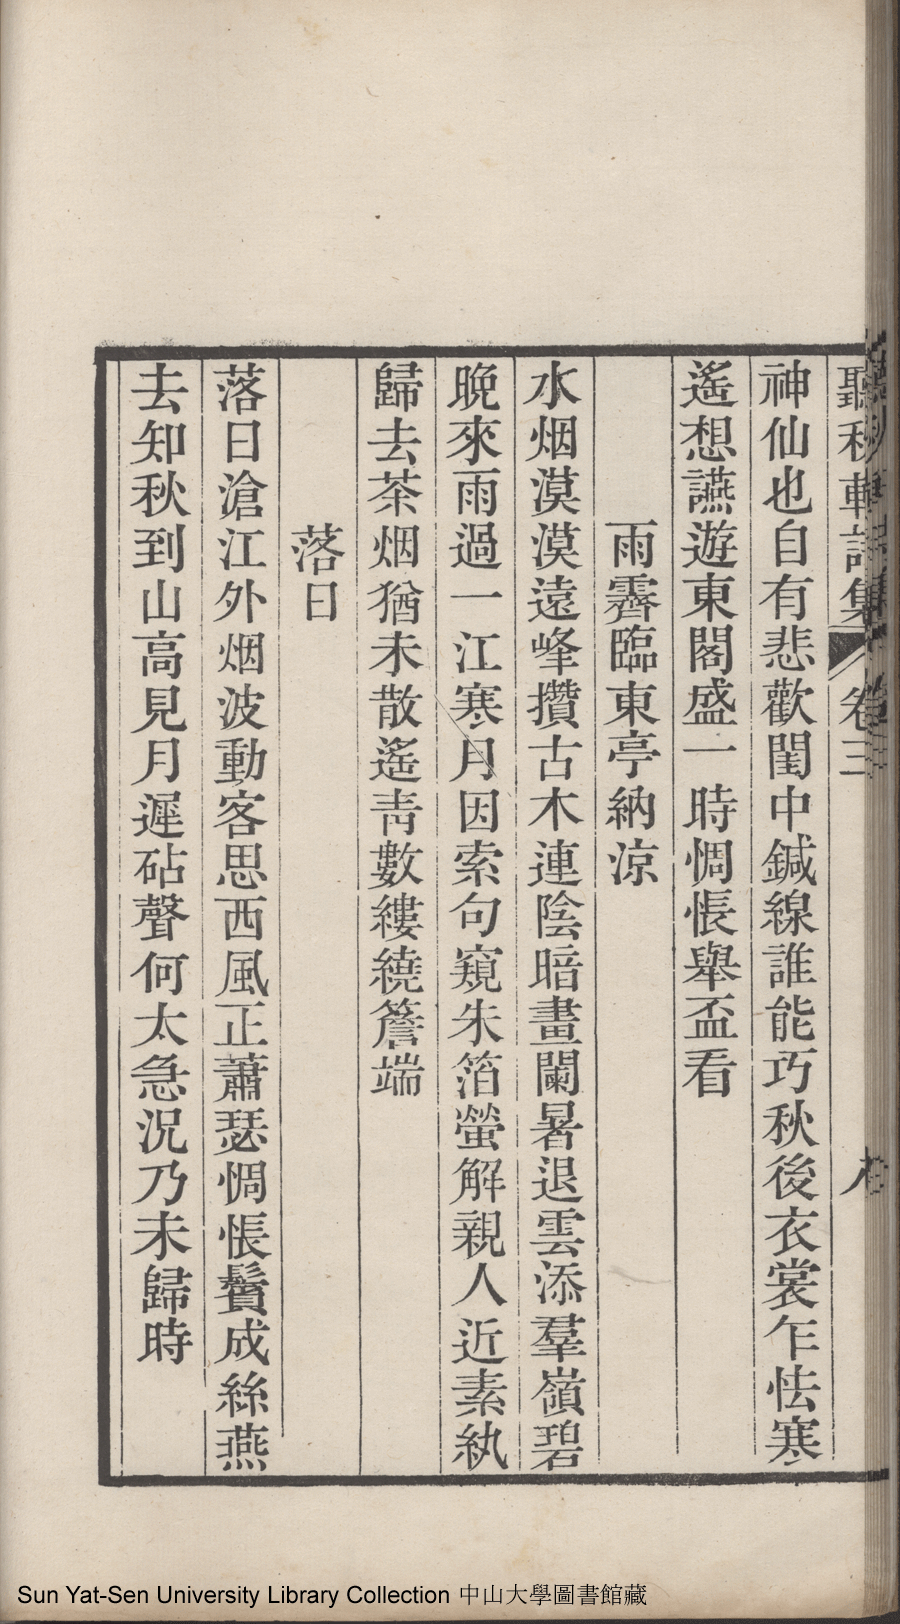 聽秋軒詩集 卷三
神仙也自有悲歡閨中鍼線誰能巧秋後衣裳乍怯寒
遙想讌遊東閣盛一時惆悵舉盃看
雨霽臨東亭納涼
水烟漠漠遠峰攢古木連陰暗畫闌暑退雲添羣嶺碧
晚來雨過一江寒月因索句窺朱箔螢解親人近素紈
歸去茶烟猶未散遙靑數縷繞簷端
落日
落日滄江外烟波動客思西風正蕭瑟惆悵鬢成絲燕
去知秋到山高見月遲砧聲何太急況乃未歸時
Sun Yat-Sen University Library Collection 中山大學圖書館藏